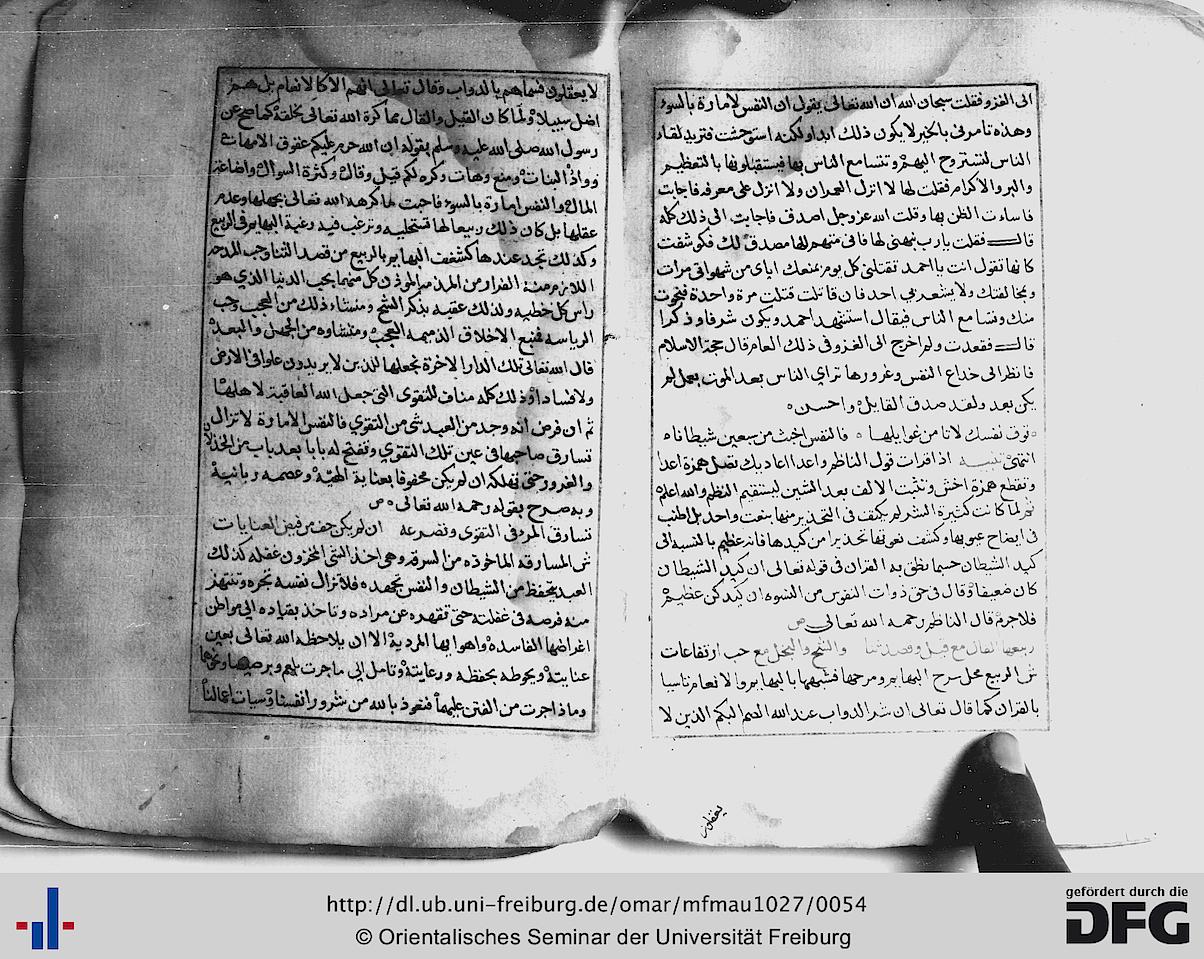 الى الغزو فقلت سبحان الله ان الله تعالى يقول ان النفس لامارة بالسوء
وهذه تامرني بالخير لا يكون ذلك ابدا ولكنه استوحشت فتريد لقاء
الناس لتستروح اليهم وتتسامع الناس بها فيستقبلونها بالتعظيم
والبر والاكرام فقلت لها لا انزل العمران ولا انزل على معرفه فاجابت
فاسات الظن بها وقلت الله عز وجل اصدق فاجابت الى ذلك كله
قال فقلت يارب نبهني لها فاني متهم لها مصدق لك فكوشفت
كانها تقول انت يا احمد تقتلني كل يوم بمنعك اياي من شهواتي مرات
وبمخالفتك ولا يشعر بي احد فان قاتلت قتلت مرة واحدة فنجوت
منك وتسامع الناس فيقال استشهد احمد ويكون شرفا وذكرا
قال فقعدت ولم اخرج الى الغزو في ذلك العام قال حجة الاسلام
فانظر الى خداع النفس وغرورها تراي الناس بعد الموت بعمل لم
يكن بعد ولقد صدق القايل واحسن
توق نفسك لا تامن غوايلها فالنفس اخبث من سبعين شيطانا
انتهى تنبيه اذا قرات قول الناظم واعدا اعاديك بقصر همزة اعدا
وتقطع همزة اخشى وتثبت الالف بعد الشين ليستقيم النظم والله اعلم
ثم لما كانت كثيرة الشر لم يكتف في التحذير منها بنعت واحد بل اطنب
في ايضاح عيوبها وكشف نعوتها تحذيرا من كيدها فانه عظيم بالنسبه الى
كيد الشيطان حسبما نطق به القران في قوله تعالى ان كيد الشيطان
كان ضعيفا وقال في حق ذوات النفوس من النسوه ان كيدكن عظيم
فلا جرم قال الناظم رحمه الله تعالى ص
ربيعها القال مع قيل وقصد ثنا والشح والبخل مع حب ارتفاعات
ش الربيع محل سرح البهايم ومرحها فشبهها بالبهايم والانعام تاسيا
بالقران كما قال تعالى ان شر الدواب عند الله الصم البكم الذين لا
يعقلون
لا يعقلون فسماهم بالدواب وقال تعالى ان هم الا كالانعام بل هم
اضل سبيلا ولما كان القيل والقال مما كره الله تعالى لخلقه كما صح عن
رسول الله صلى الله عليه وسلم بقوله ان الله حرم عليكم عقوق الامهات
وواد البنات ومنع وهات وكره لكم قيل وقال وكثرة السوال واضاعة
المال والنفس امارة بالسوء فاحبت ما كرهه الله تعالى لجهلها وعدم
عقلها بل كان ذلك ربيعا لها تستحليه وترغب فيه رغبة البهايم في الربيع
وكذلك تجد عندها كشغف البهايم بالربيع من قصد الثنا وحب المدحه
اللازم منه الفرار من المذمه الموذن كل منهما بحب الدنيا الذي هو
راس كل خطيه ولذلك عقبه بذكر الشح ومنشاء ذلك من العجب وحب
الرياسه فمنبع الاخلاق الذميمه العجب ومنشاوه من الجهل والبعد
قال الله تعالى تلك الدار الاخرة نجعلها للذين لا يريدون علوا في الارض
ولا فسادا وذلك كله مناف للتقوى التي جعل الله العاقبة لاهلها
ثم ان فرض انه وجد من العبد شي من التقوي فالنفس الامارة لا تزال
تسارق صاحبها في عين تلك التقوي وتفتح له بابا بعد باب من الخذلان
والغرور حتى تهلكه ان لم يكن محفوفا بعناية الهية وعصمه ربانية
وبه صرح بقوله رحمه الله تعالى ص
تسارق المرء في التقوى وتصرعه ان لم يكن حف من فيض العنايات
ش المسارقه الماخوذه من السرقه وهي اخذ الشي المخزون غفله كذلك
العبد يتحفظ من الشيطان والنفس بجهده فلا تزال نفسه تجره وتنتهز
منه فرصه في غفلته حتى تقهره عن مراده وتاخذ بقياده الى مواطن
اغراضها الفاسده واهوايها المردية الا ان يلاحظه الله تعالى بعين
عنايته ويحوطه بحفظه ورعايته وتامل الى ما جرت لبلعم وبرصيصا ونحوهما
وماذا جرت من الفتن عليهما فنعوذ بالله من شرور انفسنا وسيات اعمالنا
http://dl.ub.uni-freiburg.de/omar/mfmau1027/0054
© Orientalisches Seminar der Universität Freiburg
gefördert durch die
DFG